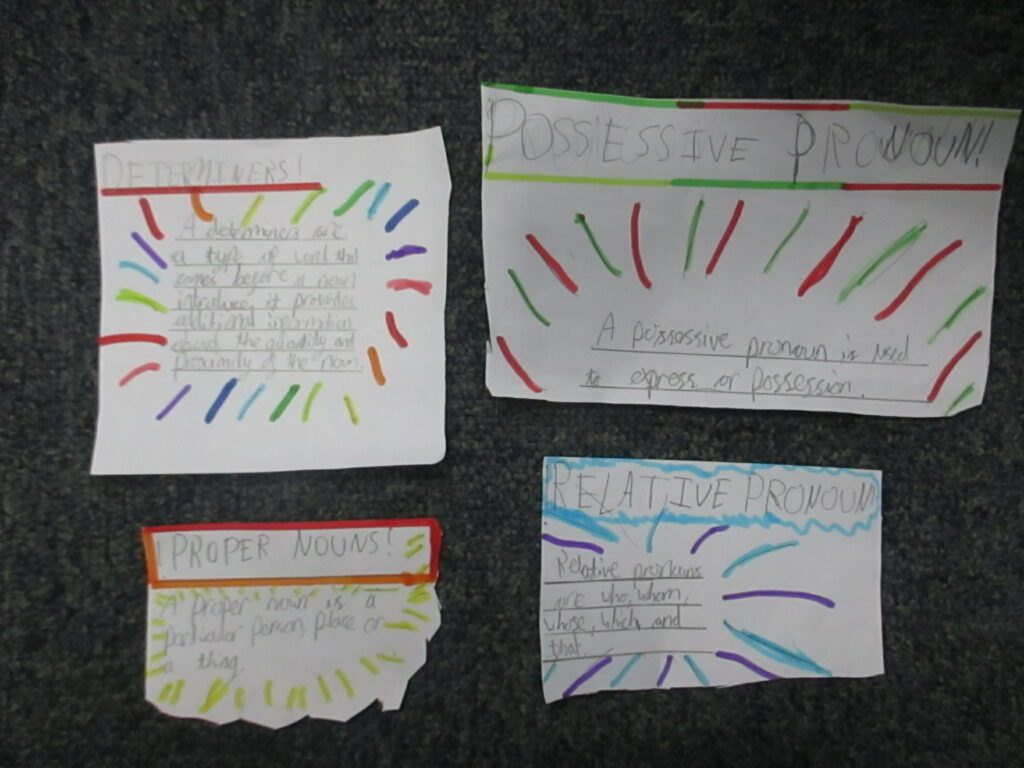 DETERMINERS!
A determiners are
a type of word that
comes before a noun
introduce, it provides
additional information
about the quantity and
proximity of the noun.
POSSIESSIVE PRONOUN!
A possossive pronoun is used
to express or possession.
!PROPER NOUNS!
A proper noun is a
particular person, place or
a thing.
RELATIVE PRONOUN
Relative pronouns
are who, whom,
whose, which, and
that.